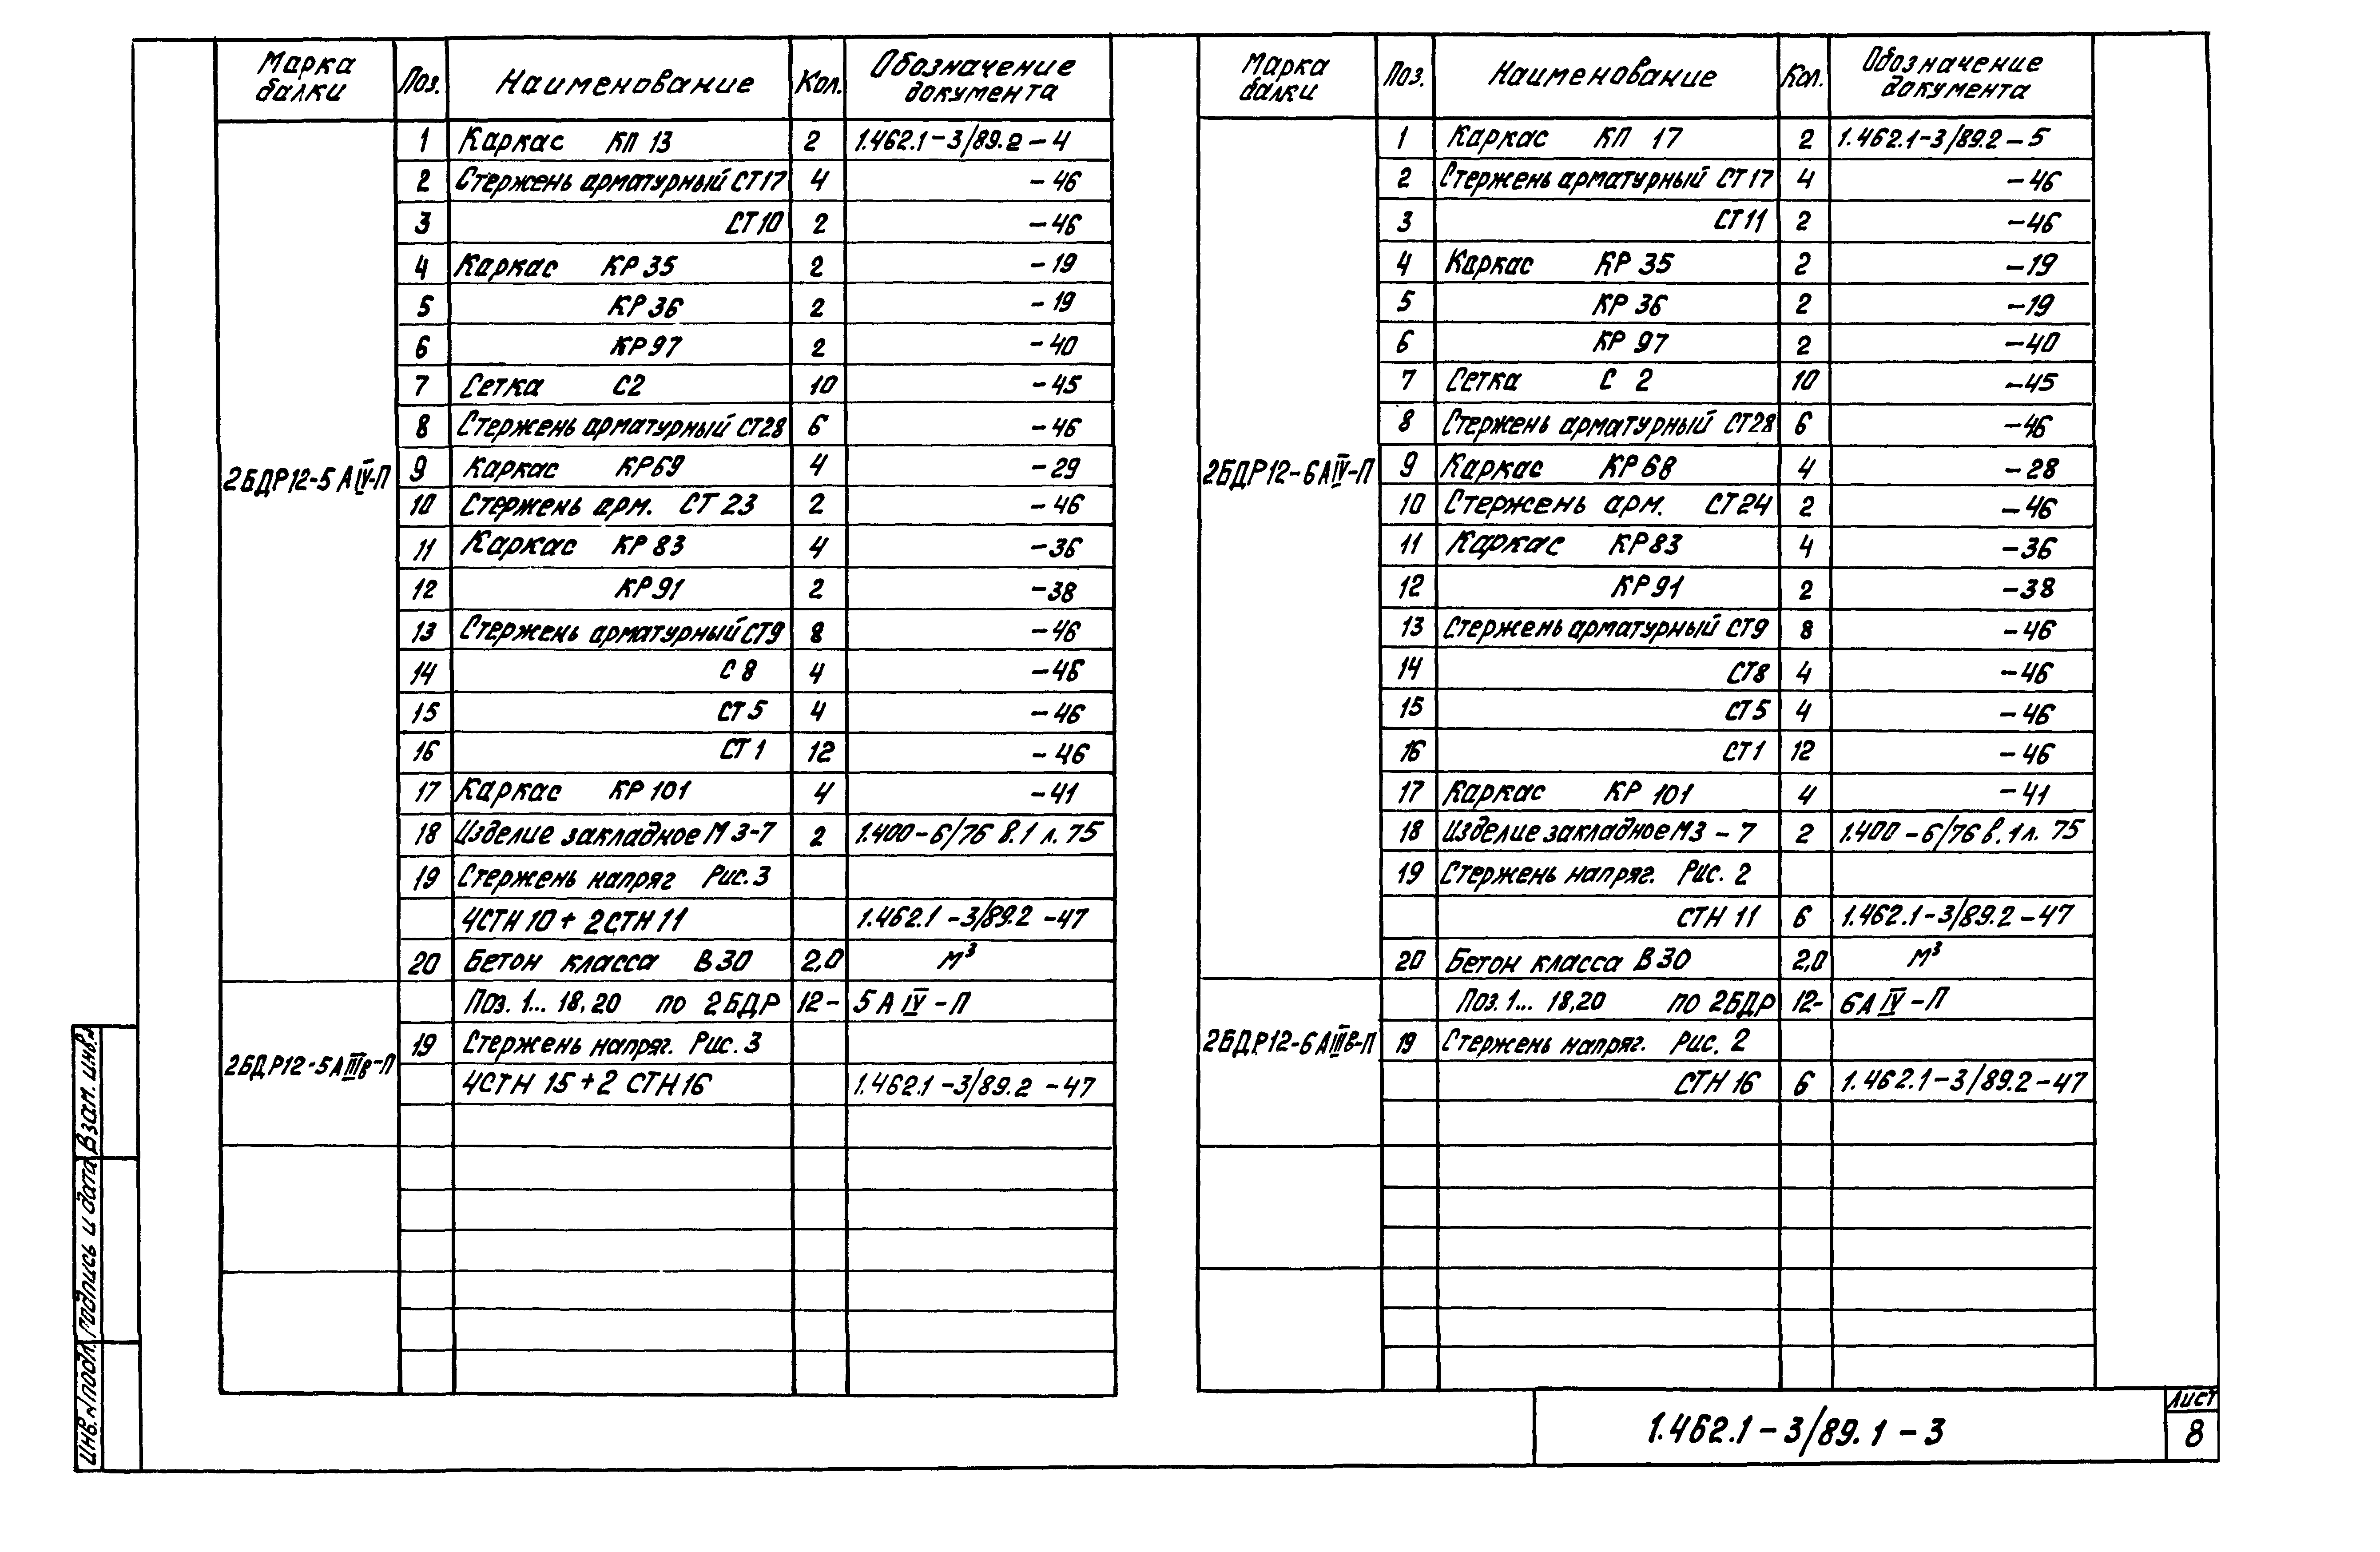 Марка балки Поз. Наименование Кол. Обозначение документа
1 Каркас КП 13 2 1.462.1-3/89.2-4
2 Стержень арматурный СТ17 4 -46
3 СТ10 2 -46
4 Каркас КР 35 2 -19
5 КР 36 2 -19
6 КР 97 2 -40
7 Сетка С2 10 -45
8 Стержень арматурный СТ28 6 -46
2БДР12-5 АIV-П 9 Каркас КР69 4 -29
10 Стержень арм. СТ 23 2 -46
11 Каркас КР 83 4 -36
12 КР 91 2 -38
13 Стержень арматурный СТ9 8 -46
14 С 8 4 -46
15 СТ 5 4 -46
16 СТ 1 12 -46
17 Каркас КР 101 4 -41
18 Изделие закладное М 3-7 2 1.400-6/76 В.1 л. 75
19 Стержень напряг Рис. 3
4СТН 10 + 2СТН 11 1.462.1-3/89.2-47
20 Бетон класса В 30 2,0 м³
Поз. 1... 18,20 по 2БДР 12- 5 А IV -П
2БДР12-5АIIIв-П 19 Стержень напряг. Рис. 3
4СТН 15 + 2 СТН 16 1.462.1-3/89.2-47
Марка балки Поз. Наименование Кол. Обозначение документа
1 Каркас КП 17 2 1.462.1-3/89.2-5
2 Стержень арматурный СТ 17 4 -46
3 СТ 11 2 -46
4 Каркас КР 35 2 -19
5 КР 36 2 -19
6 КР 97 2 -40
7 Сетка С 2 10 -45
8 Стержень арматурный СТ28 6 -46
2БДР12-6АIV-П 9 Каркас КР 68 4 -28
10 Стержень арм. СТ24 2 -46
11 Каркас КР83 4 -36
12 КР91 2 -38
13 Стержень арматурный СТ9 8 -46
14 СТ8 4 -46
15 СТ 5 4 -46
16 СТ1 12 -46
17 Каркас КР 101 4 -41
18 Изделие закладное М3-7 2 1.400-6/76 в.1 л. 75
19 Стержень напряг. Рис. 2
СТН 11 6 1.462.1-3/89.2-47
20 Бетон класса В 30 2,0 м³
Поз. 1... 18,20 по 2БДР 12- 6А IV -П
2БДР12-6АIIIв-П 19 Стержень напряг. Рис. 2
СТН 16 6 1.462.1-3/89.2-47
Инв. № подл. Подпись и дата Взам. инв. №
1.462.1-3/89.1-3
Лист
8